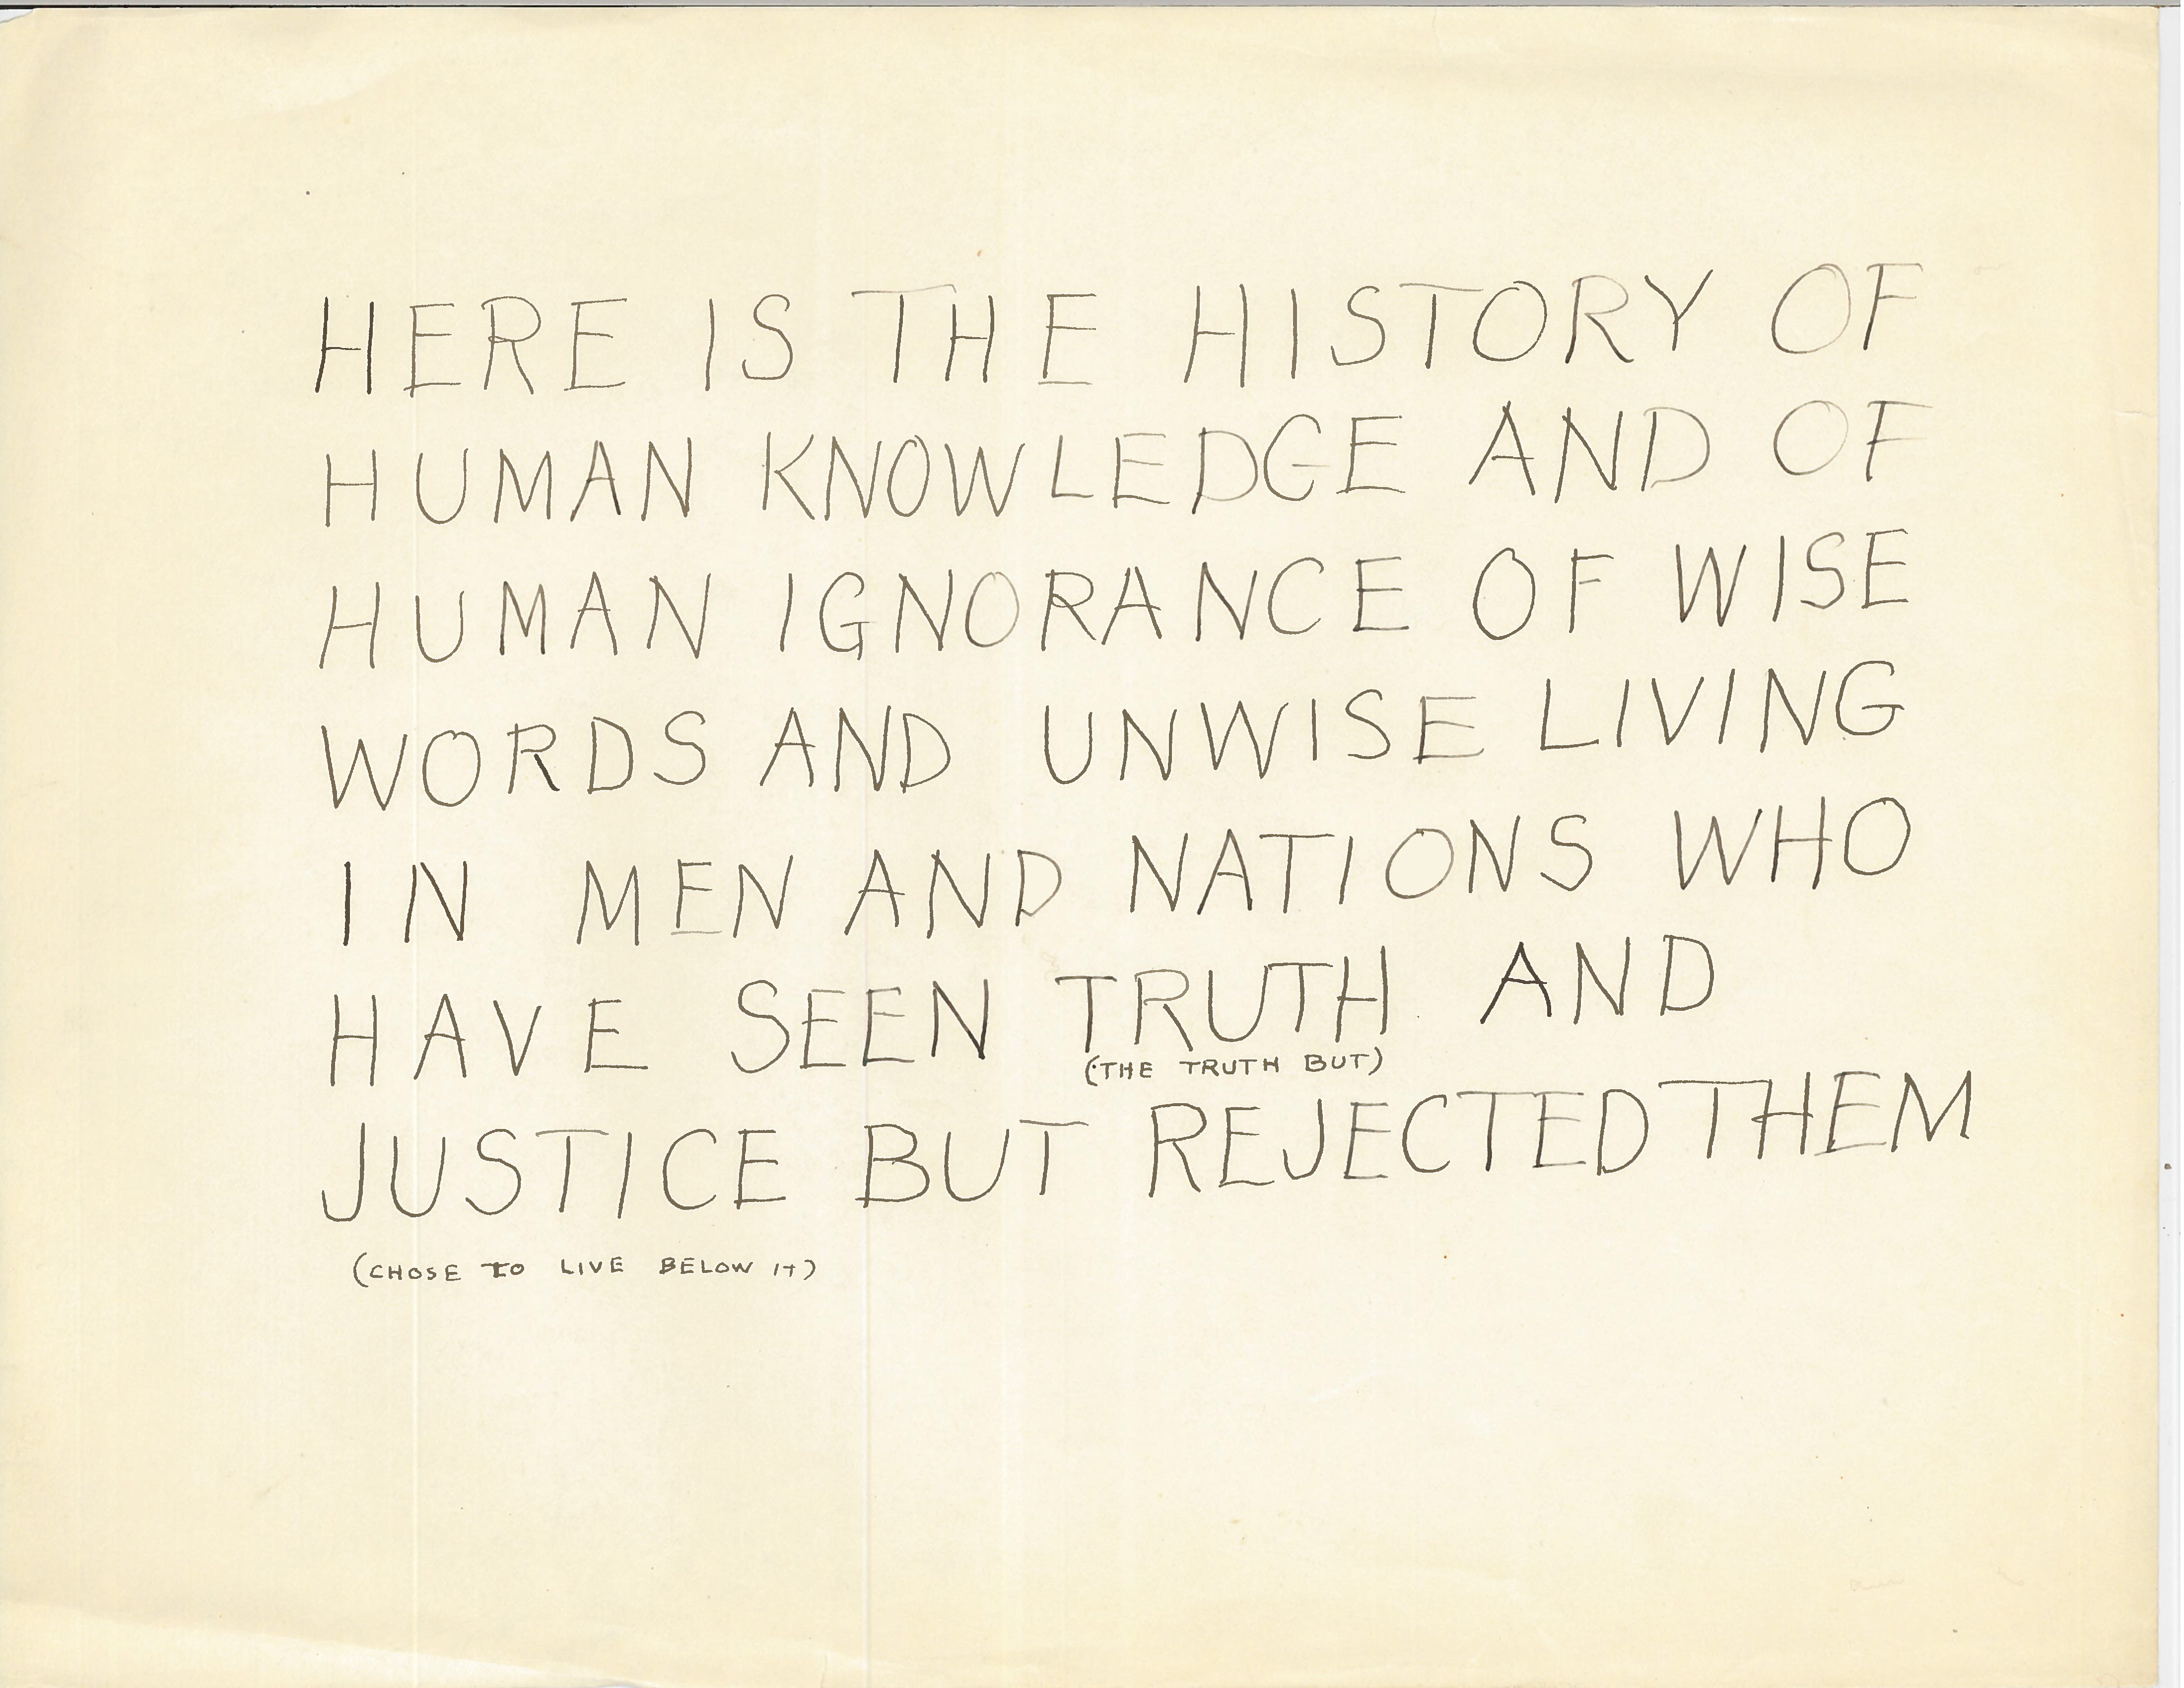 HERE IS THE HISTORY OF
HUMAN KNOWLEDGE AND OF
HUMAN IGNORANCE OF WISE
WORDS AND UNWISE LIVING
IN MEN AND NATIONS WHO
HAVE SEEN TRUTH AND
(THE TRUTH BUT)
JUSTICE BUT REJECTED THEM
(CHOSE TO LIVE BELOW IT)